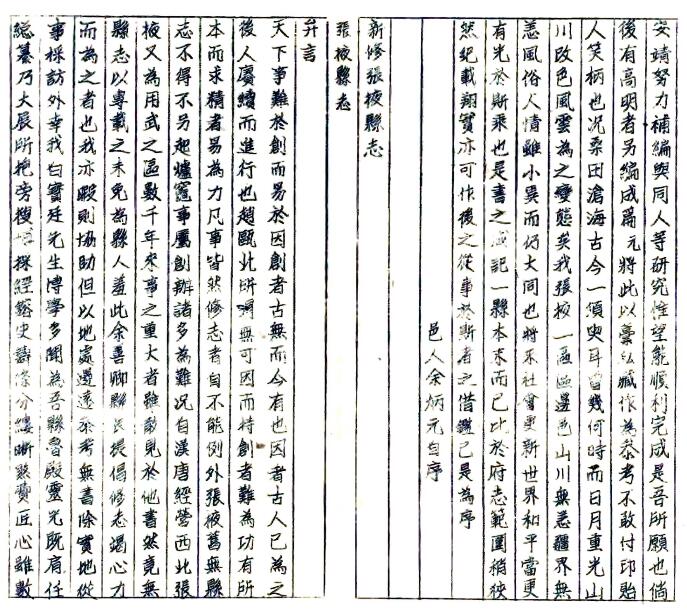 安靖努力補編與同人等研究惟望能順利完成是吾所願也倘
後有高明者另編成篇元將此以藁弘藏作為參考不敢付印貽
人笑柄也況桑田滄海古今一須臾耳曾幾何時而日月重光山
川改色風雲為之變態矣我張掖一區區邊邑山川無恙疆界無
恙風俗人情雖小異而仍大同也將來社會更新世界和平當更
有光於斯乘也是書之成記一縣本末而已比於府志範圍稍狹
然紀載翔實亦可作後之從事於斯者之借鑑已是為序
邑人余炳元自序
新修張掖縣志
張掖縣志
弁言
天下事難於創而易於因創者古無而今有也因者古人已為之
後人賡續而進行也趙甌北所謂無可因而特創者難為功有所
本而求精者易為力凡事皆然修志者自不能例外張掖舊無縣
志不得不另起爐竈事屬創辦諸多為難況自漢唐經營西北張
掖又為用武之區數千年來事之重大者雖散見於他書然竟無
縣志以專載之未免為縣人羞此余善卿縣長提倡修志竭心力
而為之者也我亦暇則協助但以地處邊遠參考無書除實地從
事採訪外幸我白實廷先生博學多聞為吾縣魯殿靈光既肩任
總纂乃大展所抱旁搜採經鎔史鑄條分縷晰繄費匠心雖數